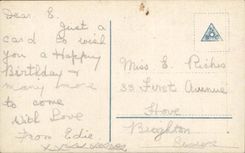 Dear E.
Just a
card to wish
you a Happy
Birthday &
many more
to come
With Love
From Edie.
xxxxxxxxxxx
Miss E.
33 First Avenue
Hove
Brighton
Sussex